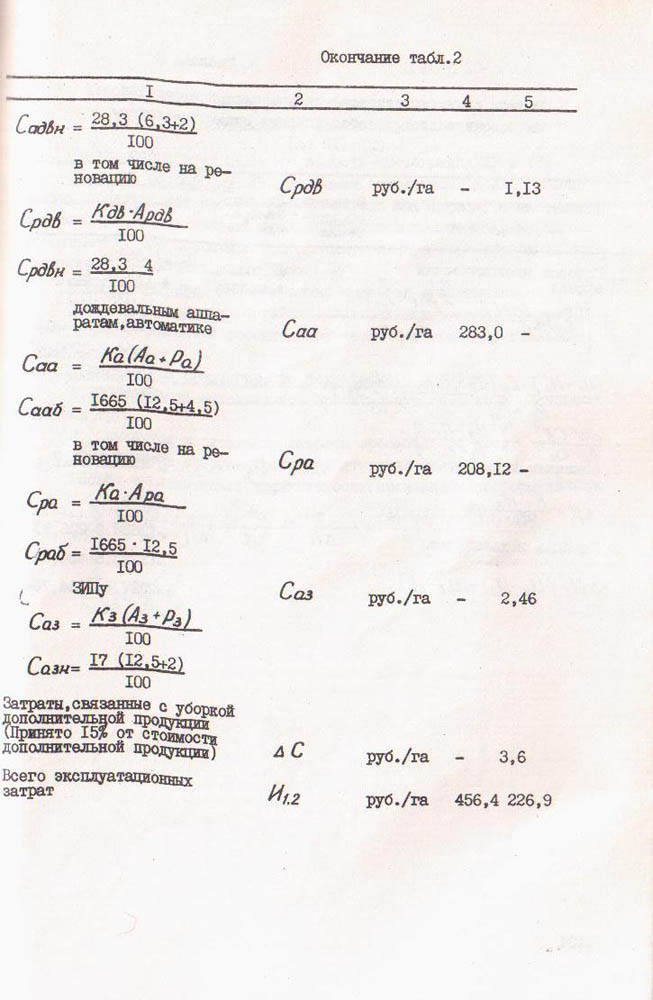 Окончание табл.2
I 2 3 4 5
Садвн = 28,3 (6,3+2)
I00
в том числе на ре-
новацию Срдв руб./га - I,I3
Срдв = Кдв·Ардв
I00
Срдвн = 28,3 4
I00
дождевальным аппа-
ратам,автоматике Саа руб./га 283,0 -
Саа = Ка(Аа+Ра)
I00
Сааб = I665 (I2,5+4,5)
I00
в том числе на ре-
новацию Сра руб./га 208,I2 -
Сра = Ка·Ара
I00
Сраб = I665·I2,5
I00
ЗИПу Саз руб./га - 2,46
Саз = Кз(Аз+Рз)
I00
Сазн= I7 (I2,5+2)
I00
Затраты,связанные с уборкой
дополнительной продукции
(Принято I5% от стоимости
дополнительной продукции) ΔС руб./га - 3,6
Всего эксплуатационных
затрат И1.2 руб./га 456,4 226,9